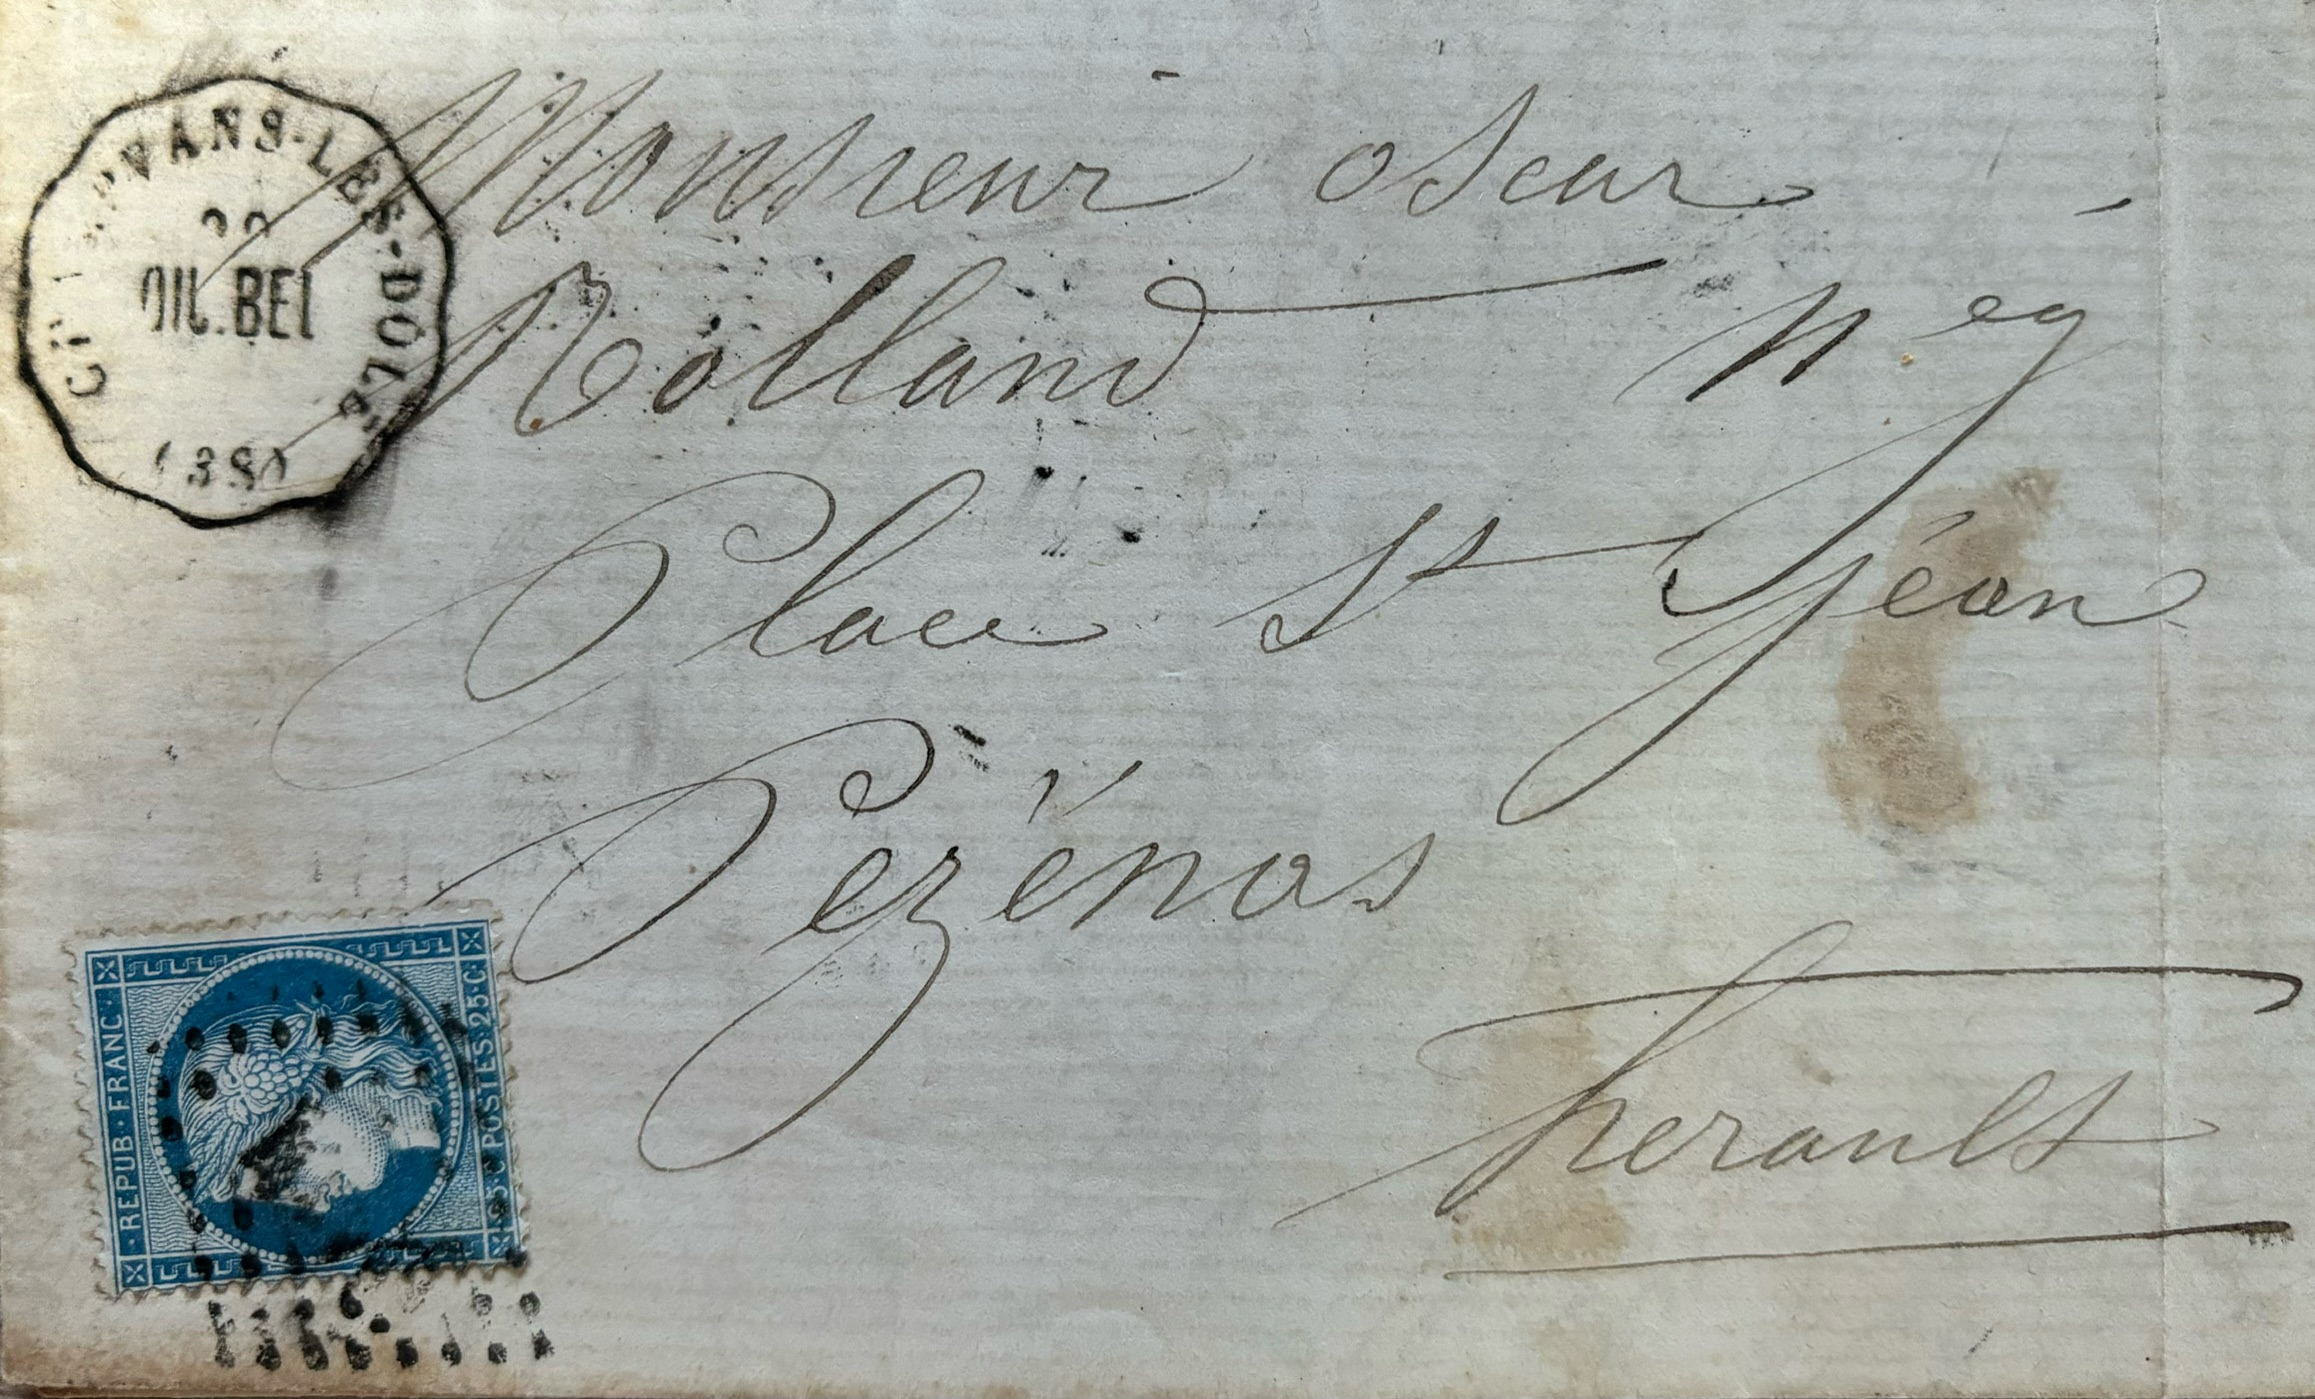 VANS-LES-DÔLE
BEL
(38)
Monsieur oscar
Rolland neg
Place St Jéan
Pézénas
herault
REPUB·FRANC·
25·C·POSTES·25·C